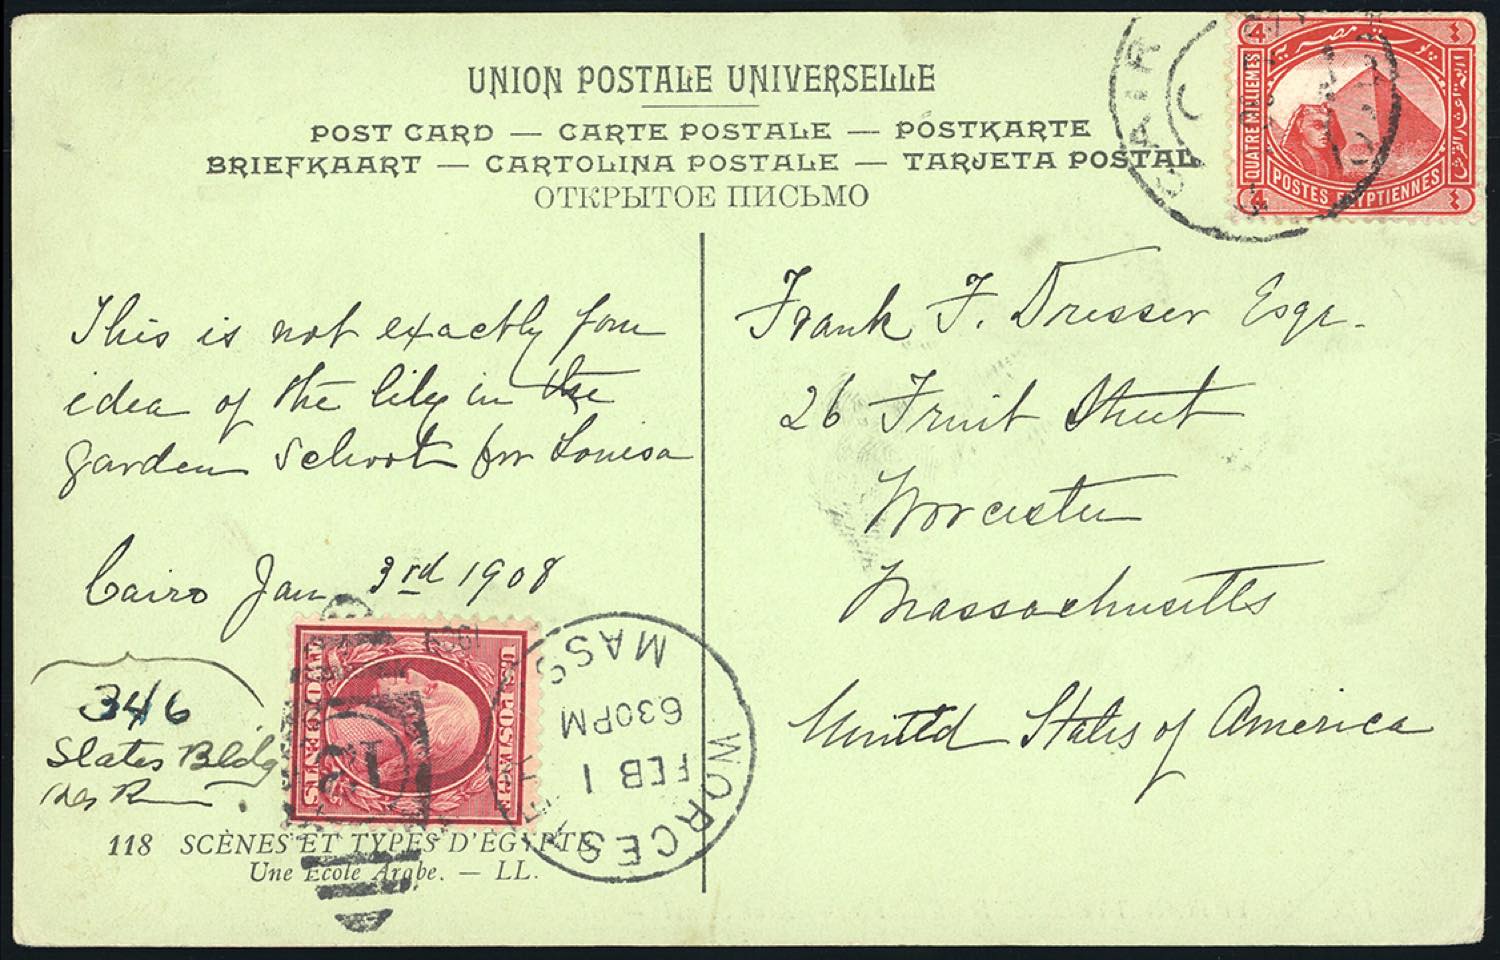 UNION POSTALE UNIVERSELLE
POST CARD — CARTE POSTALE — POSTKARTE
BRIEFKAART — CARTOLINA POSTALE — TARJETA POSTAL
ОТКРЫТОЕ ПИСЬМО
CAIR
4 4
بوستة مصرية
QUATRE MILLIEMES
POSTES EGYPTIENNES
4 ٤
This is not exactly your
idea of the lily in the
garden school for Louisa
Cairo Jan 3rd 1908
Frank F. Dresser Esqr.
26 Fruit Street
Worcester
Massachusetts
United States of America
346
Slater Bldg
U.S. POSTAGE
TWO CENTS
1909
WORCESTER MASS
FEB 1
630PM
118 SCÈNES ET TYPES D'ÉGYPTE
Une École Arabe. — LL.